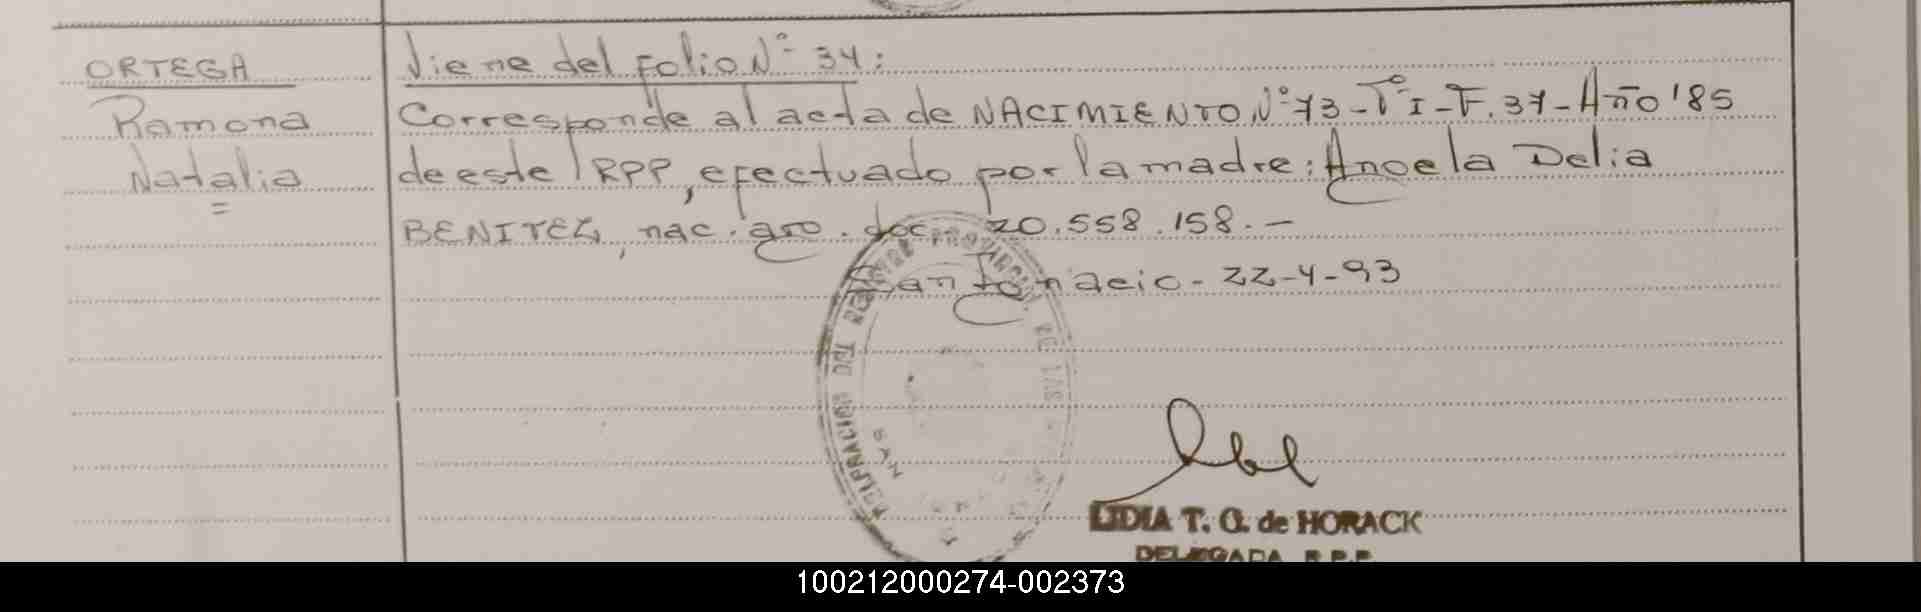 ORTEGA
Ramona
Natalia
=
Viene del Folio Nº 34:
Corresponde al acta de NACIMIENTO Nº 73-Tº I-F.37-Año '85
de este RPP, efectuado por la madre: Angela Delia
BENITEZ, nac. arg. doc. 20.558.158.-
San Ignacio - 22-4-93
SAN
LIDIA T. G. de HORACK
DELEGADA R.P.P.
100212000274-002373